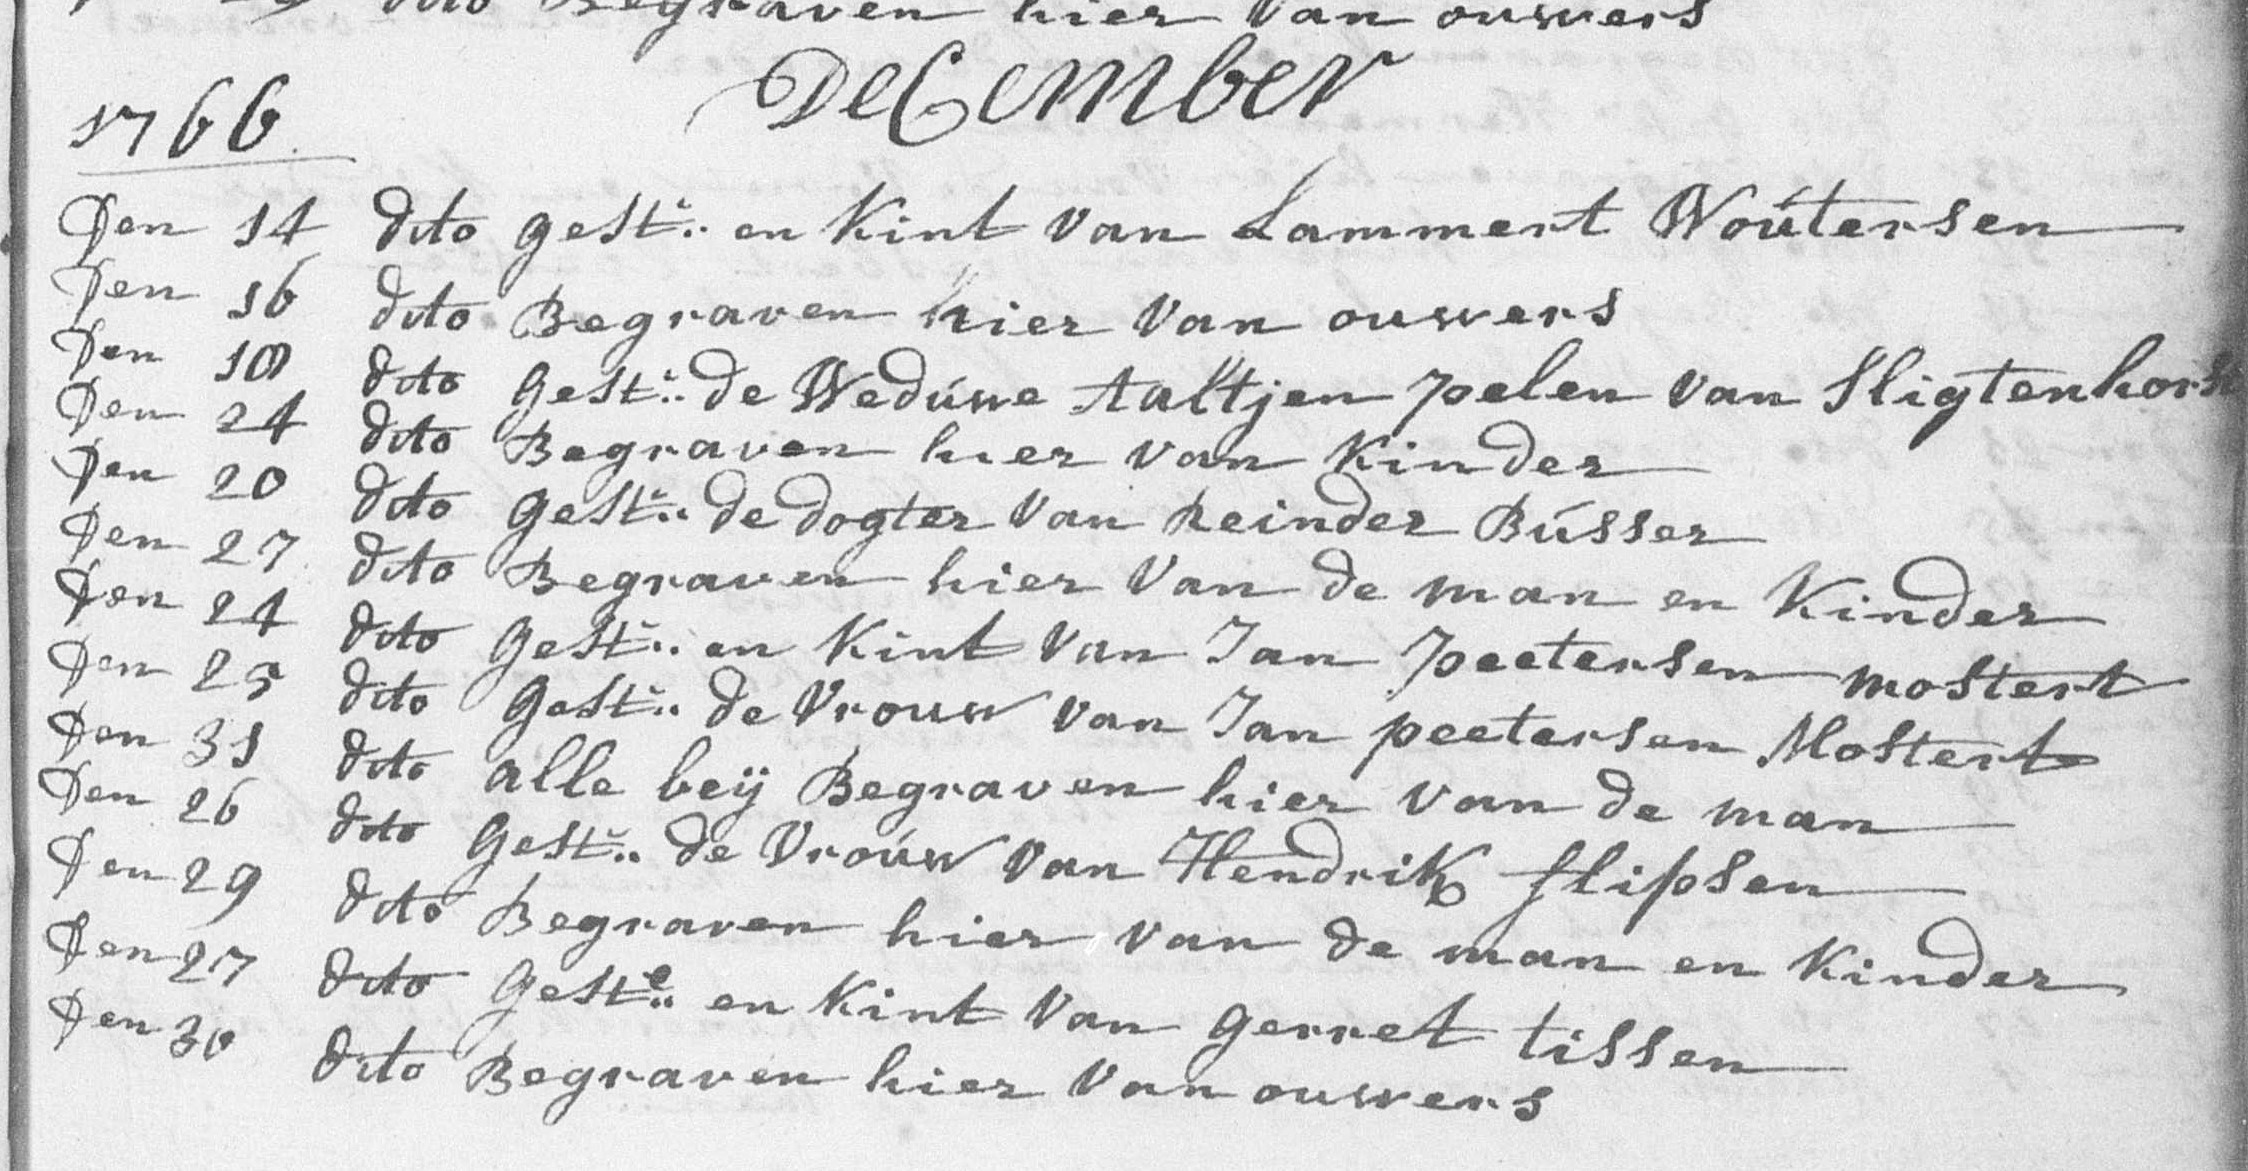 dito Begraven hier van ouwers
DeCember
1766
Den 14 dito gest:. en Kint van Lammert Woútersen
Den 16 dito Begraven hier van ouwers
Den 18 dito Gest:. de Wedúwe Aaltjen pelen van Sligtenhorst
Den 24 dito Begraven hier van Kinder
Den 20 dito gest:. de dogter van Reinder Bússer
Den 27 dito Begraven hier van de man en Kinder
Den 24 dito Gest:. en Kint van Jan peetersen mostert
Den 25 dito Gest:. de Vrouw van Jan peetersen Mostert
Den 31 dito alle beÿ Begraven hier van de man
Den 26 dito Gest:. de Vroúw van Hendrik flipsen
Den 29 dito Begraven hier van de man en Kinder
Den 27 dito Geste:. en Kint van gerret tissen
Den 30 dito Begraven hier van ouwers